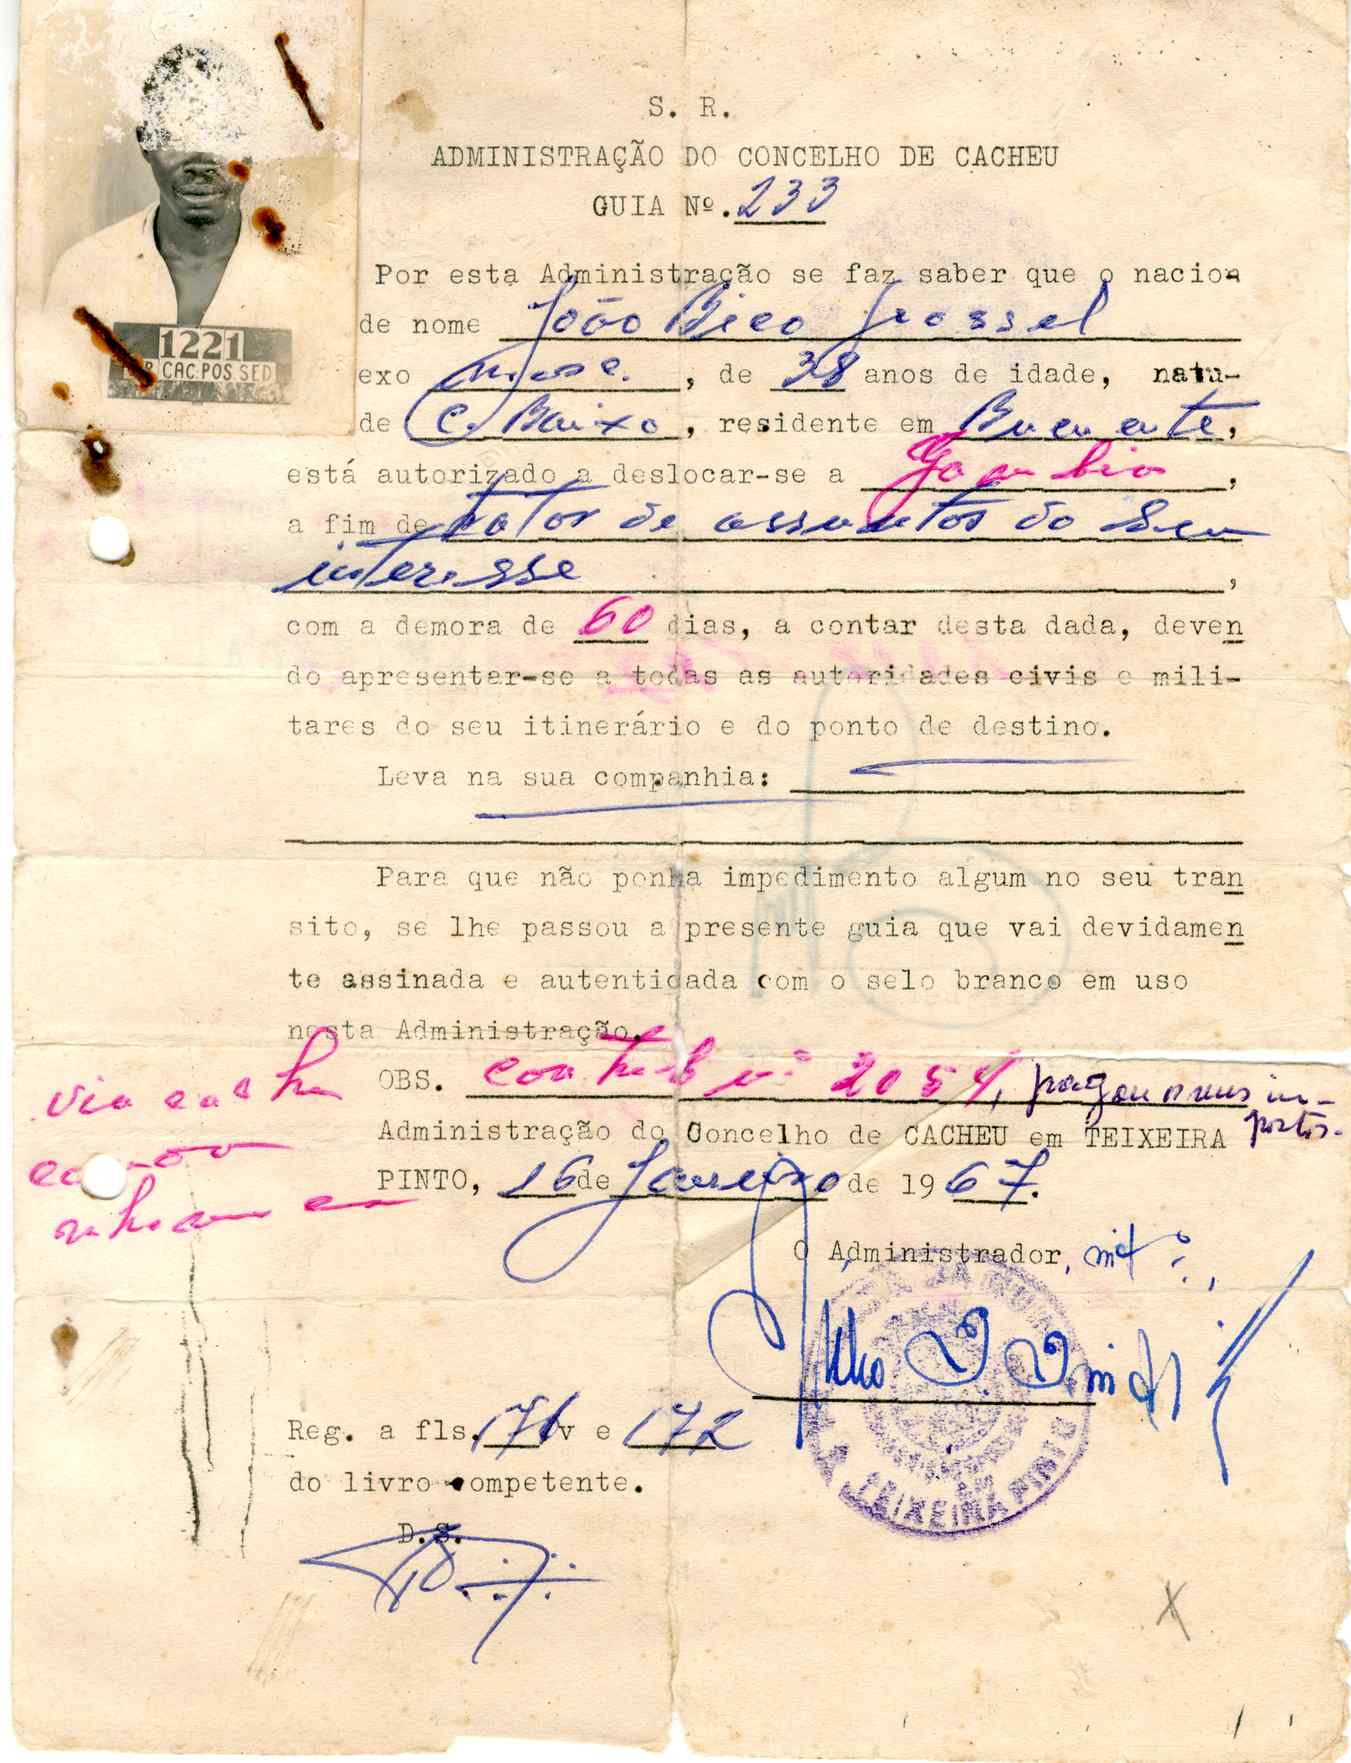 S. R.
ADMINISTRAÇÃO DO CONCELHO DE CACHEU
GUIA Nº. 233
Por esta Administração se faz saber que o nacion
de nome João Bico
exo masc. , de 38 anos de idade, natu-
de C. Baixo, residente em
está autorizado a deslocar-se a Gambia,
a fim de tratar de assuntos do seu
interesse,
com a demora de 60 dias, a contar desta dada, deven
do apresentar-se a todas as autoridades civis e mili-
tares do seu itinerário e do ponto de destino.
Leva na sua companhia:
Para que não ponha impedimento algum no seu tran
sito, se lhe passou a presente guia que vai devidamen
te assinada e autenticada com o selo branco em uso
nesta Administração.
OBS. contrib nº 2054, pagou o seus im-
postos.
Administração do Concelho de CACHEU em TEIXEIRA
PINTO, 16 de Janeiro de 1967.
O Administrador, intº.,
Reg. a fls. 171 v e 172
do livro competente.
D.S.
1221
CAC.POS SED
via
TEIXEIRA PINTO